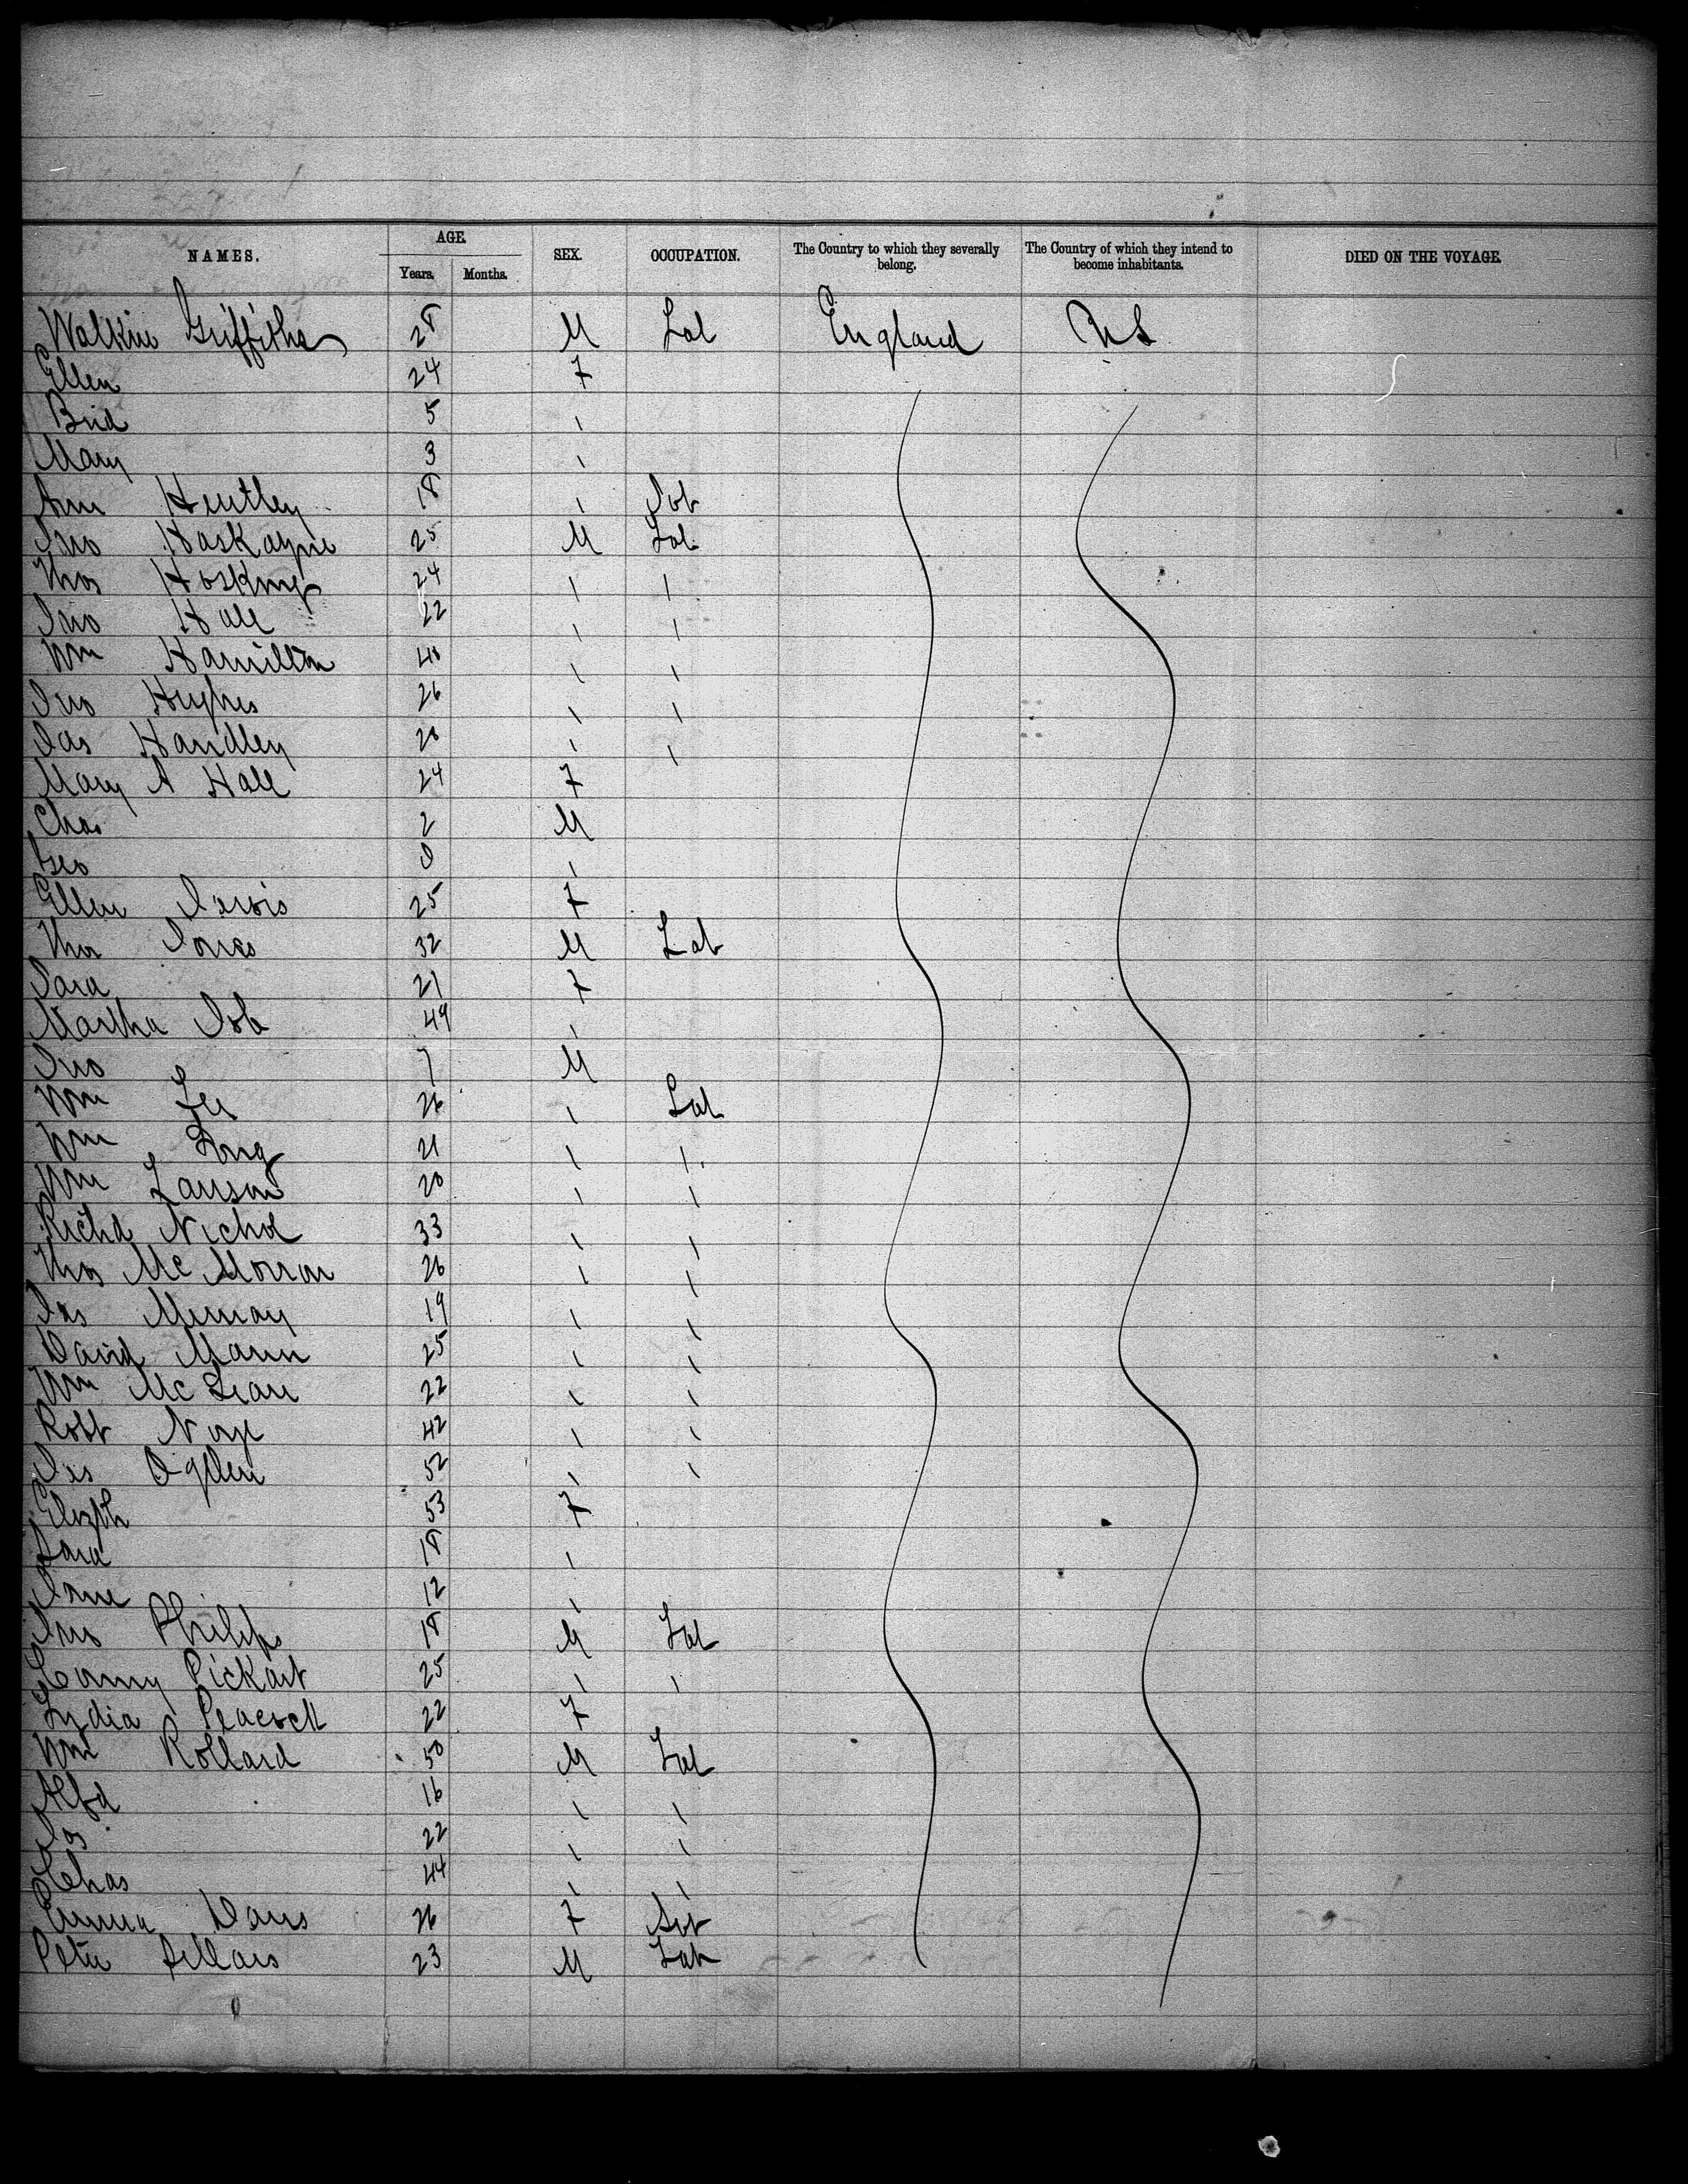 NAMES. AGE. SEX. OCCUPATION. The Country to which they severally belong. The Country of which they intend to become inhabitants. DIED ON THE VOYAGE.
Years. Months.
Walkin Griffiths 28 M Lab England US
Ellen 24 F
Brid 5 \
Mary 3 \
Ann Huntley 18 \
Jno Haskayne 25 M Lab
Thos Hosking 24 \ \
Jno Hall 22 \ \
Wm Hamilton 40 \ \
Jno Hughes 26 \ \
Jas Handley 20 \ \
Mary A Hall 24 F
Chas 2 M
Geo 0 \
Ellen Jarvis 25 F
Thos Jones 32 M Lab
Sara 21 F
Martha Job 49 \
Jno 7 M
Wm Lee 26 \ Lab
Wm Long 21 \ \
Wm Lawson 20 \ \
Richd Nichol 33 \ \
Thos McMorran 26 \ \
Jas Murray 19 \ \
David Mann 25 \ \
Wm McLean 22 \ \
Robt Naye 42 \ \
Jas Ogden 52 \ \
Elizth 53 F
Sara 18 \
Jane 12 \
Jno Philips 18 M Lab
Pickart 25 \ \
Lydia Peacock 22 F
Wm Rollard 50 M Lab
Alfd 16 \ \
Jas 22 \ \
Chas 44 \ \
Emma Davis 26 F Svt
Peter Sellars 23 M Lab